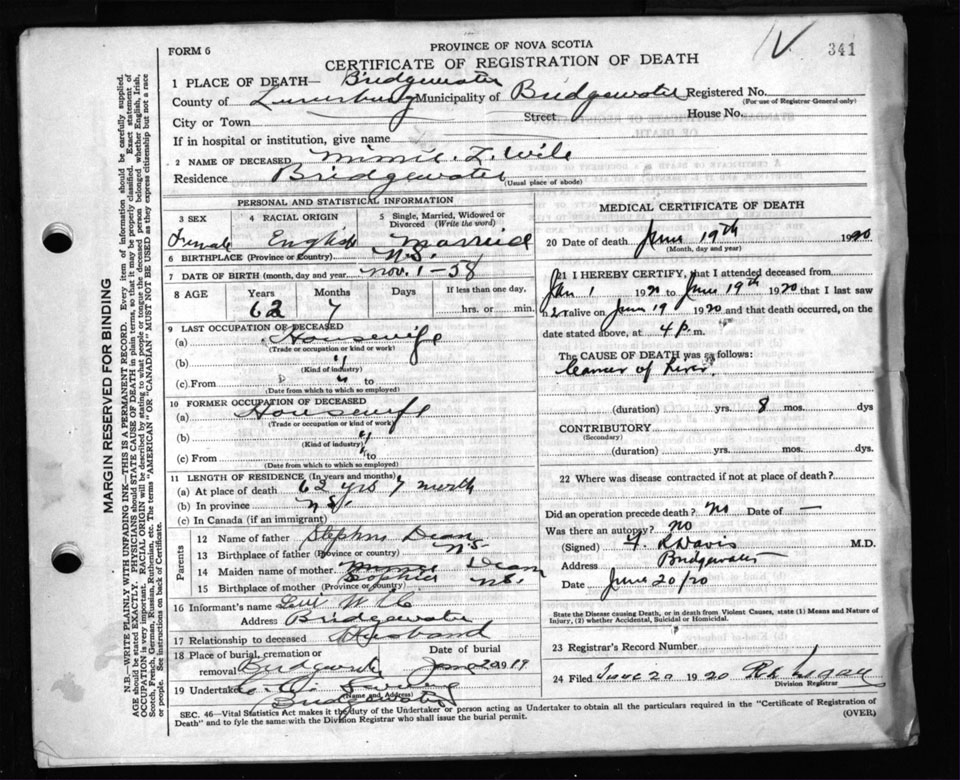 FORM 6
PROVINCE OF NOVA SCOTIA
341
CERTIFICATE OF REGISTRATION OF DEATH
1 PLACE OF DEATH— Bridgewater
County of Lunenburg Municipality of Bridgewater Registered No.
(For use of Registrar General only)
City or Town Street House No.
If in hospital or institution, give name
2 NAME OF DECEASED Minnie L. Wile
Residence Bridgewater
(Usual place of abode)
PERSONAL AND STATISTICAL INFORMATION
3 SEX 4 RACIAL ORIGIN 5 Single, Married, Widowed or Divorced (Write the word)
Female English Married
6 BIRTHPLACE (Province or Country) N.S.
7 DATE OF BIRTH (month, day and year) Nov. 1-58
8 AGE Years Months Days If less than one day,
62 7 hrs. or min.
9 LAST OCCUPATION OF DECEASED
(a) Housewife
(Trade or occupation or kind or work)
(b) "
(Kind of industry)
(c) From to
(Date from which to which so employed)
10 FORMER OCCUPATION OF DECEASED
(a) Housewife
(Trade or occupation or kind or work)
(b) "
(Kind of industry)
(c) From to
(Date from which to which so employed)
11 LENGTH OF RESIDENCE (In years and months)
(a) At place of death 62 yrs 7 month
(b) In province N.S.
(c) In Canada (if an immigrant)
Parents
12 Name of father Stephns Dean
13 Birthplace of father (Province or country) N.S.
14 Maiden name of mother Dean
Sophia
15 Birthplace of mother (Province or country) N.S.
16 Informant's name
Address Bridgewater
17 Relationship to deceased Husband
18 Place of burial, cremation or removal Date of burial
19 Undertaker
(Name and Address)
Bridgewater
MEDICAL CERTIFICATE OF DEATH
20 Date of death June 19th 1920
(Month, day and year)
21 I HEREBY CERTIFY, that I attended deceased from
Jan 1 1920 to June 19th 1920 that I last saw
alive on June 19 1920 and that death occurred, on the
date stated above, at 4 P. m.
The CAUSE OF DEATH was as follows:
Cancer of Liver.
(duration) yrs. 8 mos. dys
CONTRIBUTORY
(Secondary)
(duration) yrs. mos. dys.
22 Where was disease contracted if not at place of death?
Did an operation precede death? No Date of —
Was there an autopsy? No
(Signed) F. R Davis M.D.
Address Bridgewater
Date June 20/20
State the Disease causing Death, or in death from Violent Causes, state (1) Means and Nature of
Injury, (2) whether Accidental, Suicidal or Homicidal.
23 Registrar's Record Number
24 Filed June 20 1920
Division Registrar
SEC. 46—Vital Statistics Act makes it the duty of the Undertaker or person acting as Undertaker to obtain all the particulars required in the "Certificate of Registration of
Death" and to fyle the same with the Division Registrar who shall issue the burial permit. (OVER)
MARGIN RESERVED FOR BINDING
N.B.—WRITE PLAINLY WITH UNFADING INK—THIS IS A PERMANENT RECORD. Every item of information should be carefully supplied.
AGE should be stated EXACTLY. PHYSICIANS should STATE CAUSE OF DEATH in plain terms, so that it may be properly classified. Exact statement of
OCCUPATION is very important. RACIAL ORIGIN will be described by stating to what people or tongue the deceased person belonged whether English, Irish,
Scotch, French, German, Russian, Ruthenian, etc. The terms "AMERICAN" OR "CANADIAN" MUST NOT BE USED as they express citizenship but not a race
or people. See instructions on back of Certificate.